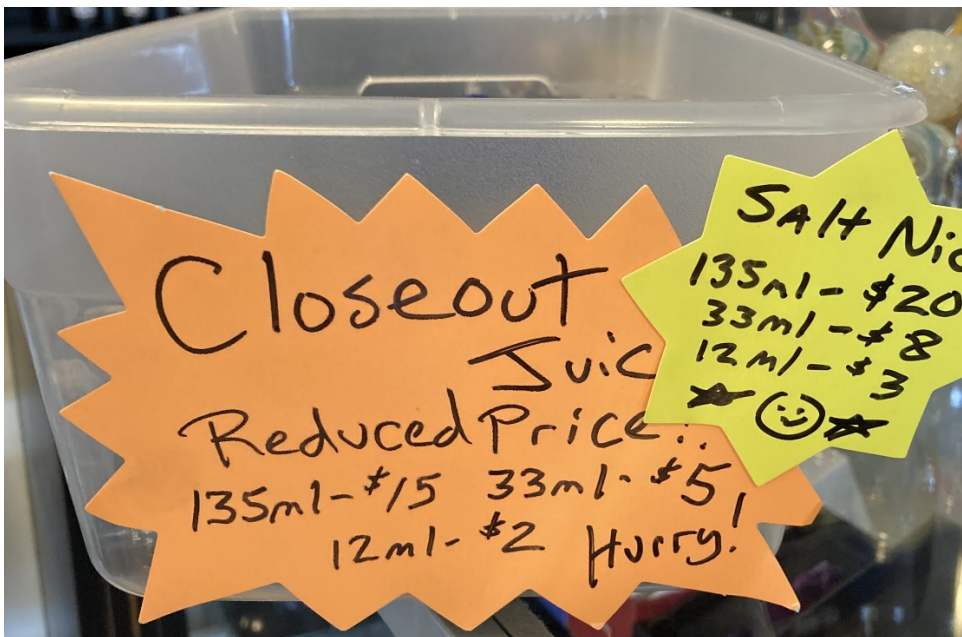 Closeout
Juic
Reduced Price!!
135ml-$15 33ml-$5
12ml-$2 Hurry!
SAlt Nic
135ml-$20
33ml-$8
12ml-$3